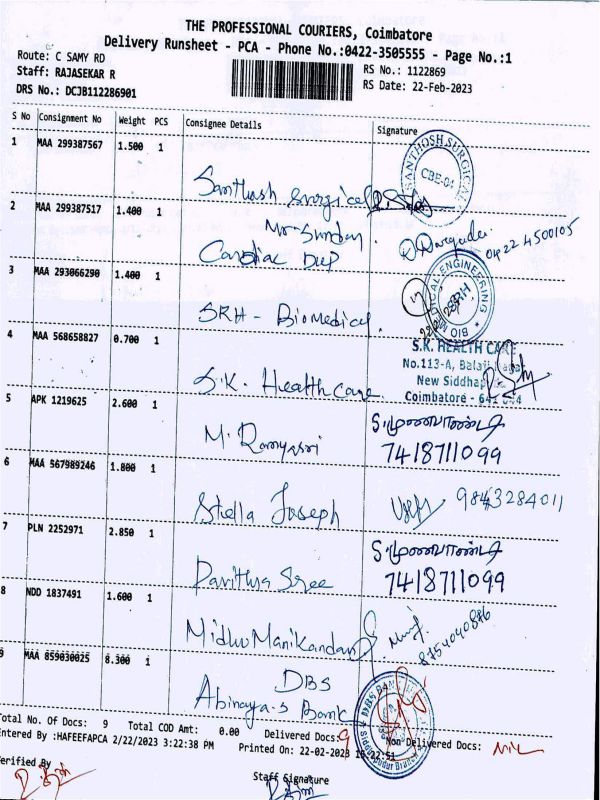 THE PROFESSIONAL COURIERS, Coimbatore
Delivery Runsheet - PCA - Phone No.:0422-3505555 - Page No.:1
Route: C SAMY RD
Staff: RAJASEKAR R
DRS No.: DCJB112286901
RS No.: 1122869
RS Date: 22-Feb-2023
S No Consignment No Weight PCS Consignee Details Signature
1 MAA 299387567 1.500 1
Santhosh surgical
SANTHOSH SURGICAL
CBE-04
2 MAA 299387517 1.400 1
Mr Sunday.
Cardiac Dep
0422 4500105
3 MAA 293066290 1.400 1
SRH - Biomedical.
BIO MEDICAL ENGINEERING
SRH
4 MAA 568658827 0.700 1
S.K. Health care
S.K. HEALTH CARE
No.113-A, Balaji
New Siddha
Coimbatore - 641 044
5 APK 1219625 2.600 1
M. Ramyasri
7418711099
6 MAA 567989246 1.800 1
Stella Joseph
9843284011
7 PLN 2252971 2.850 1
Pavithra Sree
7418711099
8 NDD 1837491 1.600 1
Midhu Manikandan
8754040876
9 MAA 859030025 8.300 1
DBS
Abinaya-s Bank
Total No. Of Docs: 9 Total COD Amt: 0.00 Delivered Docs: 9 Non Delivered Docs: NIL
Entered By :HAFEEFAPCA 2/22/2023 3:22:38 PM Printed On: 22-02-2023
Verified By
Staff Signature